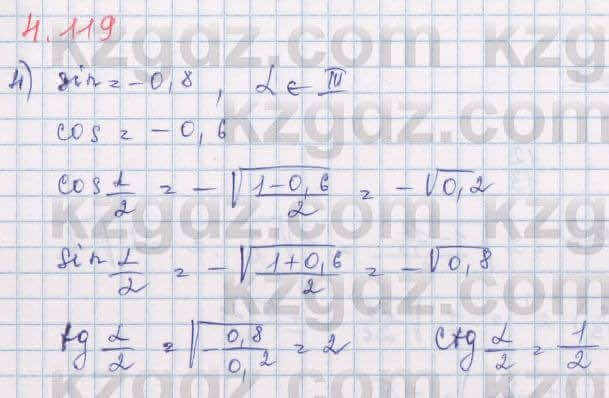 4.119
4) sin = -0,8, α ∈ III
cos = -0,6
cos α/2 = -√((1-0,6)/2) = -√0,2
sin α/2 = -√((1+0,6)/2) = -√0,8
tg α/2 = √(0,8/0,2) = 2 ctg α/2 = 1/2
kzgdz.com